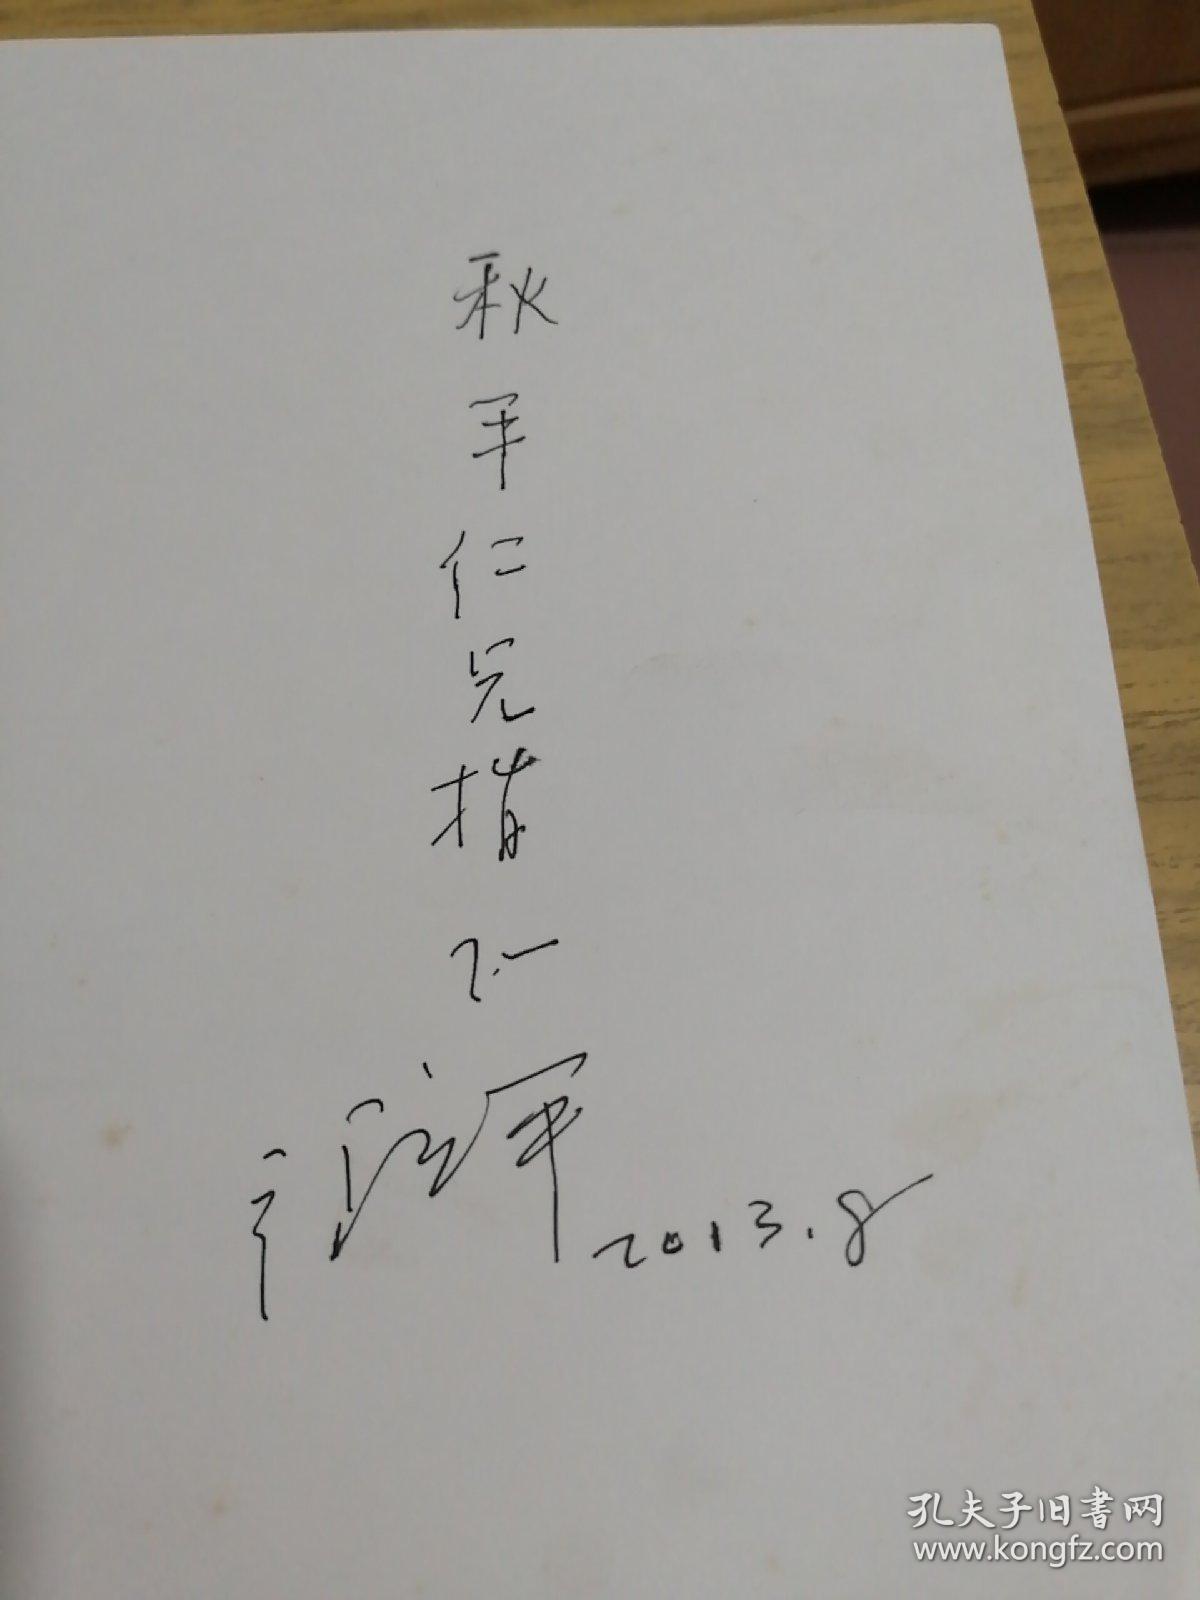 秋军仁兄指正
2013.8
孔夫子旧书网
www.kongfz.com